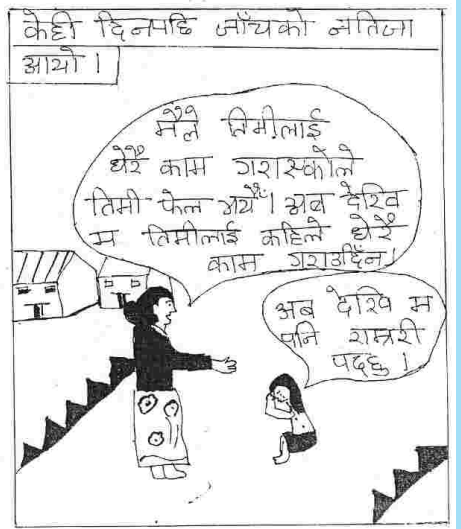 केही दिनपछि जाँचको नतिजा
आयो ।
मैले तिमीलाई
धेरै काम गरास्कोले
तिमी फेल भयौं। अब देखि
म तिमीलाई कहिले धेरै
काम गराउदिँन।
अब देखि म
पनि राम्ररी
पढ्छु ।